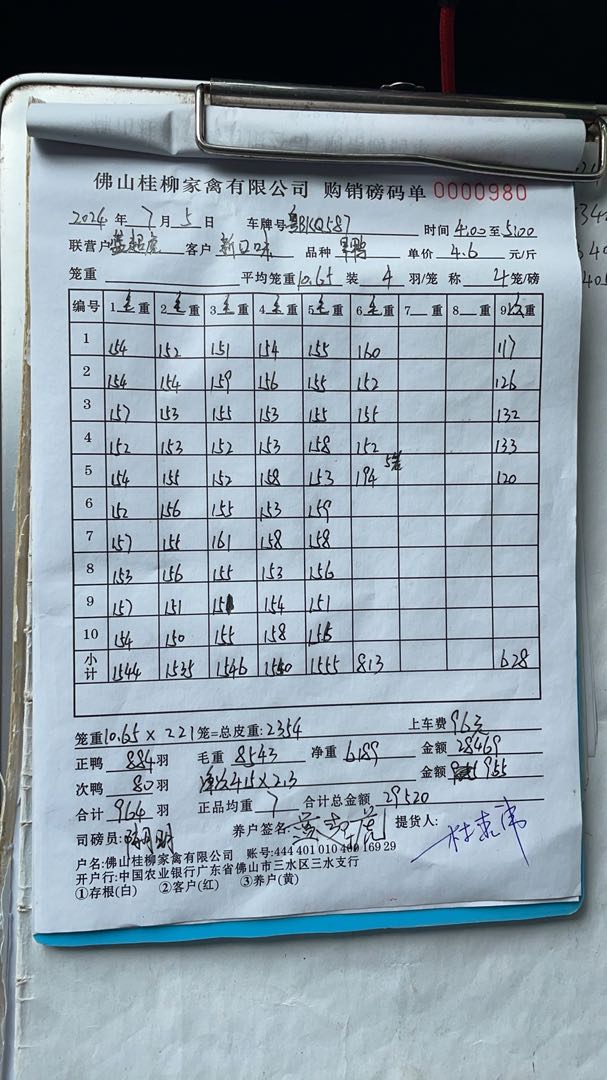 佛山桂柳家禽有限公司 购销磅码单 0000980
2024年7月5日 车牌号粤BKQ587 时间4.00至5.00
联营户 客户新口味 品种 单价4.6元/斤
笼重 平均笼重10.65装4羽/笼 称4笼/磅
编号 1毛重 2毛重 3毛重 4毛重 5毛重 6毛重 7 重 8 重 9次重
1 154 152 151 154 155 160 117
2 154 154 159 156 155 152 126
3 157 153 155 153 155 155 132
4 152 153 152 153 158 152 133
5 154 155 152 158 153 194 5笼 120
6 152 156 155 153 159
7 157 155 161 158 158
8 153 156 155 153 156
9 157 151 151 154 151
10 154 150 155 158 155
小计 1544 1535 1546 1550 1555 813 628
笼重10.65×221笼=总皮重:2354 上车费96元
正鸭884羽 毛重8543 净重6189 金额28469
次鸭80羽 净次415×2.3 金额955
合计964羽 正品均重7 合计总金额29520
司磅员: 养户签名: 提货人:
户名:佛山桂柳家禽有限公司 账号:444 401 010 400 169 29
开户行:中国农业银行广东省佛山市三水区三水支行
①存根(白) ②客户(红) ③养户(黄)